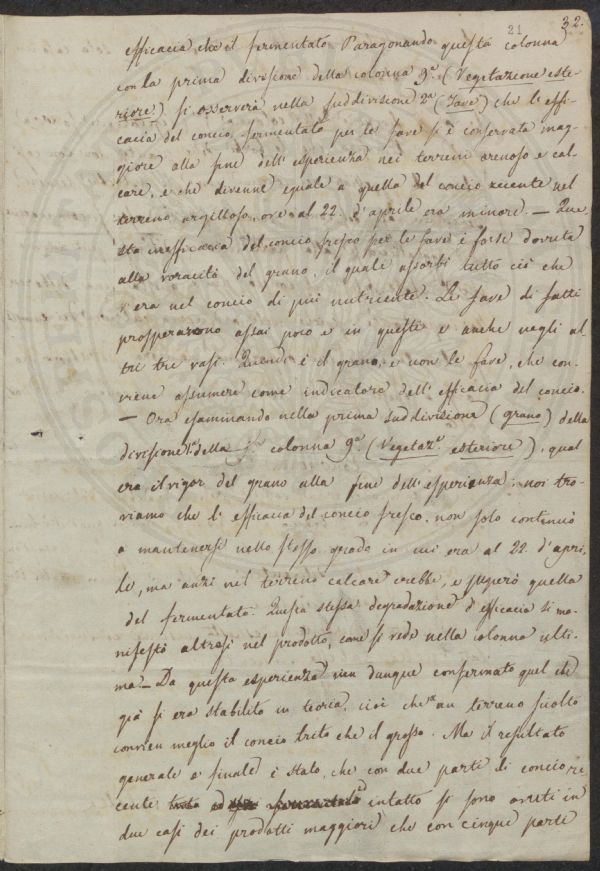 21 32.
efficacia che il fermentato. Paragonando questa colonna
con la prima divisione della colonna 9.a (Vegetazione este-
riore) si osserverà nella suddivisione 2.a (Fave) che l'effi-
cacia del concio fermentato per le fave si è conservata mag-
giore alla fine dell'esperienza nei terreni arenoso e cal-
care, e che divenne eguale a quella del concio recente nel
terreno argilloso, ove al 22. d'aprile era minore. — Que
sta inefficacia del concio fresco per le fave è forse dovuta
alla voracità del grano, il quale assorbì tutto ciò che
v'era nel concio di più nutriente. Le fave di fatti
prosperarono assai poco e in questi e anche negli al
tri tre vasi. Quindi è il grano, e non le fave, che con-
viene assumere come indicatore dell'efficacia del concio.
— Ora esaminando nella prima suddivisione (grano) della
divisione 1.a della colonna 9.a (Vegetaz.e esteriore), qual
era il vigor del grano alla fine dell'esperienza: noi tro-
viamo che l'efficacia del concio fresco, non solo continuò
a mantenersi nello stesso grado in cui era al 22. d'apri-
le, ma anzi nel terreno calcare crebbe, e superò quella
del fermentato. Questa stessa degradazione d'efficacia si ma-
nifestò altresì nel prodotto, come si vede nella colonna ulti-
ma. — Da questa esperienza vien dunque confermato quel che
già si era stabilito in teoria, cioè che a un terreno sciolto
convien meglio il concio trito che il grosso. Ma il resultato
generale e finale è stato, che con due parti di concio re-
cente intatto si sono avuti in
due casi dei prodotti maggiori che con cinque parti